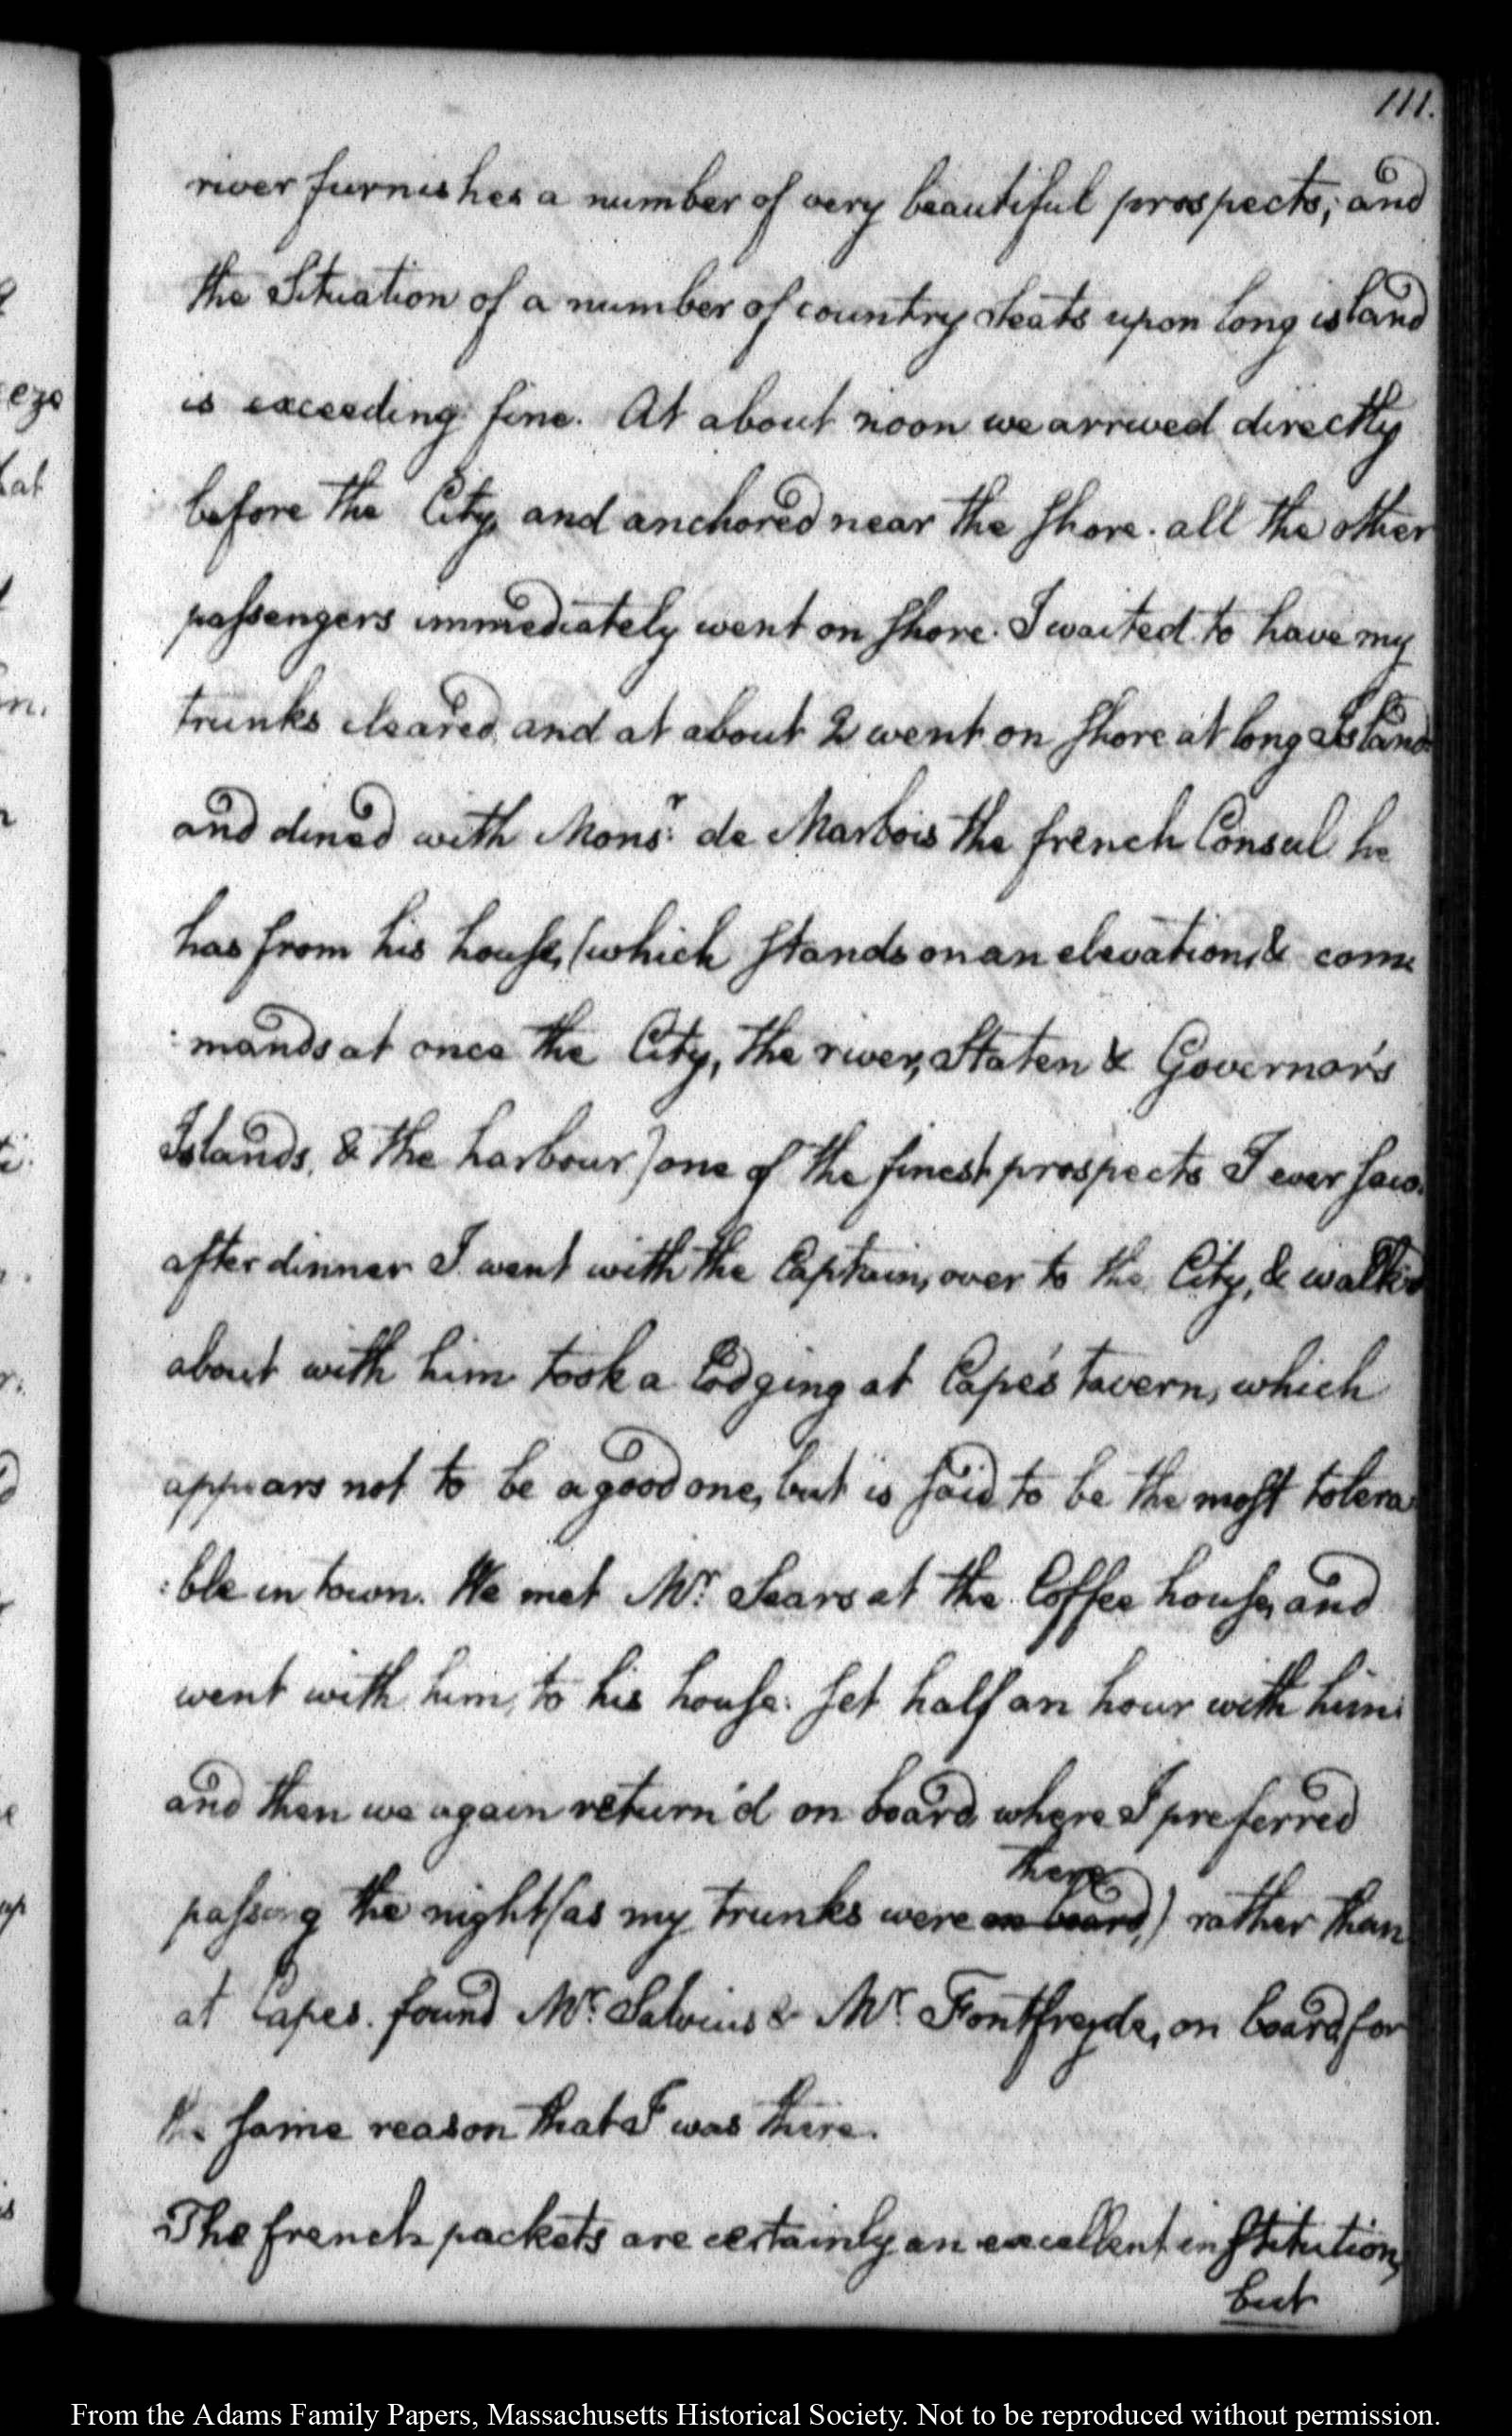 111.
river furnishes a number of very beautiful prospects; and
the Situation of a number of country seats upon long island
is exceeding fine. At about noon we arrived directly
before the City, and anchored near the shore. all the other
passengers immediately went on shore. I waited to have my
trunks cleared, and at about 2 went on shore at long Island
and dined with Monsr: de Marbois the french Consul he
has from his house, (which stands on an elevation, & com
:mands at once the City, the river, Staten & Governor's
Islands, & the harbour) one of the finest prospects I ever saw.
after dinner I went with the Captain, over to the City, & walk'd
about with him took a Lodging at Cape's tavern, which
appears not to be a good one, but is said to be the most tolera
:ble in town. We met Mr. Sears at the Coffee house, and
went with him, to his house: set half an hour with him:
and then we again return'd on board, where I preferred
there
passing the night (as my trunks were on board,) rather than
at Capes. found Mr. Salvius & Mr. Fontfreyde, on board, for
the same reason that I was there.
The french packets are certainly an excellent institution,
but
From the Adams Family Papers, Massachusetts Historical Society. Not to be reproduced without permission.